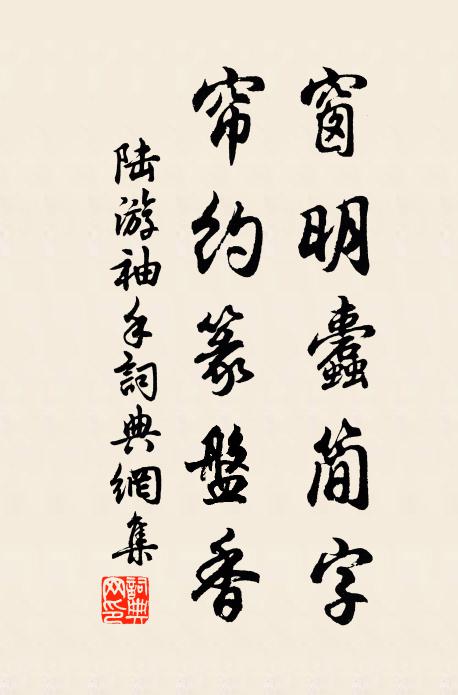 窗明蠹簡字
帘約篆盤香
陸游袖手詞典網集
詞典网印